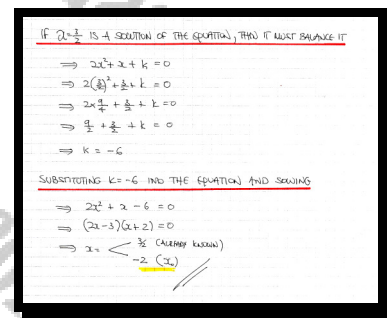 IF x=3/2 IS A SOLUTION OF THE EQUATION, THEN IT MUST BALANCE IT
⇒ 2x²+x+k=0
⇒ 2(3/2)²+3/2+k=0
⇒ 2×9/4+3/2+k=0
⇒ 9/2+3/2+k=0
⇒ k=-6
SUBSTITUTING k=-6 INTO THE EQUATION AND SOLVING
⇒ 2x²+x-6=0
⇒ (2x-3)(x+2)=0
⇒ x= < 3/2 (ALREADY KNOWN)
-2 (x₀)